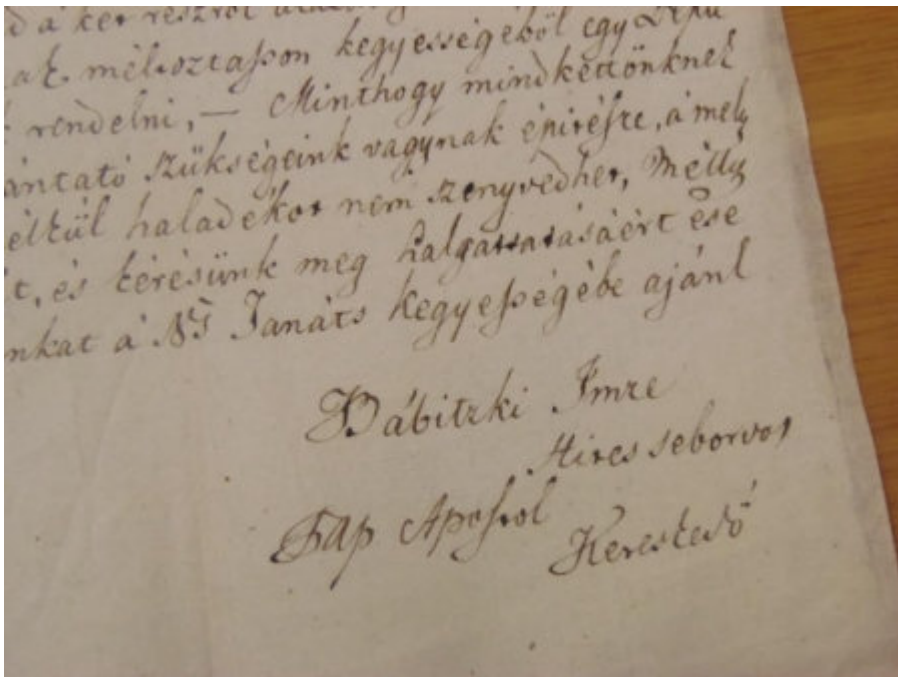 d á két részről
ak méltoztasson kegyességéből egy Depu
rendelni, — Minthogy mindkettőnknek
ántató szükségeink vagynak épitésre, á melly
élkül haladékot nem szenyvedhet, Mélly
t, és kérésünk meg halgattatásáért ese
nkat á Ns Tanáts kegyességébe ajánl
Bábitzki Imre
Hites seborvos
Pap Apostol
Kereskedő